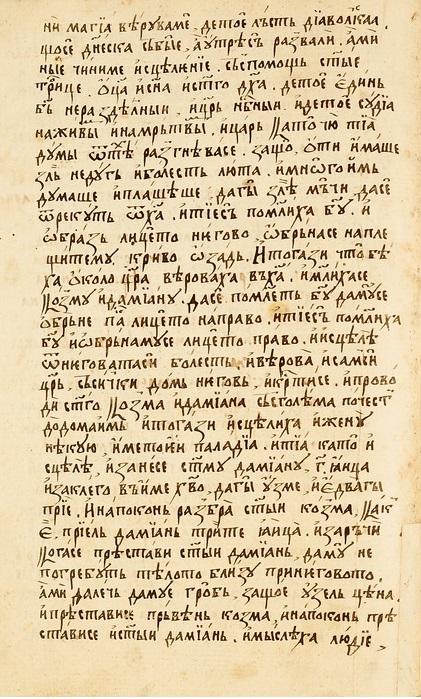 ни магїа вѣрꙋваме . детое лъсть дїаволскаа .
що се днеска сьбые , а ꙋтресъ развали . ами
ные чиниме исцѣленїе . сьспомощъ ст҃ые
трⷪ҇ице . ѻц҃а и сн҃а и ст҃го дх҃а . детое єдинь
бг҃ъ нераздѣлныи , и цр҃ь нбⷭ҇ныи . и детое сꙋдїа
на живы и на мрьтвы . и царь като чю тїа
дꙋмы ѿтѣхъ разгнѣва се . защо , ѻти имаше
зль недꙋгь и болесть люта . и много имь
дꙋмаше и плашеше , да гы злѣ мꙋчи , да се
ѿрекꙋть ѿ хⷭ҇а . и тїе се помлиха бг҃ꙋ . и
ѡбразь лицето нигово , ѡбрьна се на пле
щите мꙋ криво ѿзадь . и тогази что бѣ
ха ѻколо цр҃а , вѣроваха в хⷭ҇а . и млиха се
козмꙋ и дамїанꙋ . да се помлеть бг҃ꙋ да мꙋ се
ѡбрьне па лицето направо . и тїе се помлиха
бг҃ꙋ и ѡбрьна мꙋ се лицето право . и исцѣлѣ
ѿ нигова та си болесть . и вѣрова и самси
цр҃ь , сьсички домь ниговь , и крⷭ҇ти се . и прово
ди ст҃го козма и дамїана сьсь голѣма почесть
до дома имь и тогази исцѣлиха и женꙋ
нѣкꙋю името ѝ паладїа . и тїа като и
сцѣлѣ , и занесе ст҃мꙋ дамїанꙋ , г҃ , ꙗица
и заклего въ име хв҃о , да гы ꙋзме , и єдва гы
прїе . и напоконь разбра ст҃ыи козма , как
є прїель дамїань трите ꙗица . и заръчи
когасе прѣстави ст҃ыи дамїань , да мꙋ не
погребꙋть тѣлото близꙋ при ниговото .
ами далечь да мꙋ е гробь , защое ꙋзель цѣна .
и прѣстави се прьвѣнь козма , и напоконь прѣ
стави се и ст҃ыи дамїань . и мыслѣха людїе ,